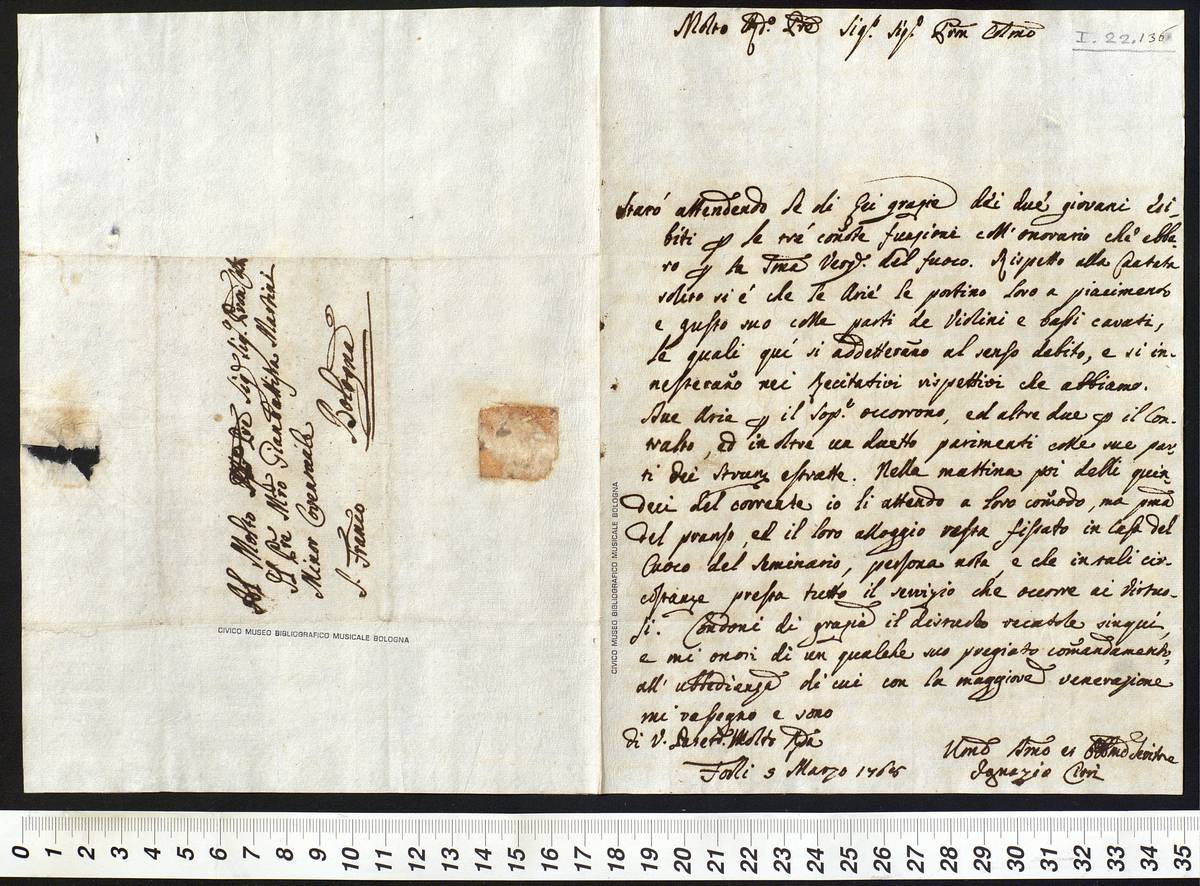 Molto Rdo Pre Sigr Sigr Pron Colmo
I. 22.136
Starò attendendo di Lei grazie dei due giovani esi-
biti p le tré connote funzioni coll' onorario che ebbe-
ro p la Sma Verg. del fuoco. Rispetto alla Cantata
solito si é che le Arie le portino loro a piacimento
e gusto suo colle parti de Violini e bassi cavati,
le quali qui si addetteranno al senso debito, e si in-
nesteranno nei Recitativi rispettivi che abbiamo.
Due Arie p il Sopo occorrono, ed altre due p il Con-
tralto, ed in oltre un duetto parimenti colle sue par-
ti dei Strum estratte. Nella mattina poi delli quin-
deci del corrente io li attendo a loro comodo, ma pma
del pranso, ed il loro alloggio resta fissato in Casa del
Cuoco del Seminario, persona nota, e che in tali cir-
costanze presta tutto il servizio che occorre ai virtuo-
si. Condoni di grazia il disturbo recatole sinqui,
e mi onori di un qualche suo pregiato comandamento,
all' ubbedienza di cui con la maggiore venerazione
mi rassegno e sono
di V. Molto Rda
Forlì 3 Marzo 1765
Umo Dmo ed Servitore
Ignazio Cirri
Al Molto Sigr Sigr
Il Pre Mro Giambattista Martini
Minor Conventuale
S. Franco Bologna
CIVICO MUSEO BIBLIOGRAFICO MUSICALE BOLOGNA
CIVICO MUSEO BIBLIOGRAFICO MUSICALE BOLOGNA
0 1 2 3 4 5 6 7 8 9 10 11 12 13 14 15 16 17 18 19 20 21 22 23 24 25 26 27 28 29 30 31 32 33 34 35